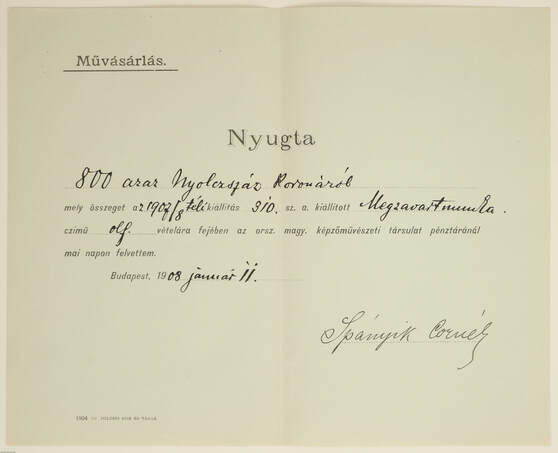 Művásárlás.
Nyugta
800 azaz Nyolczszáz Koronáról
mely összeget az 1907/8 téli kiállítás 310. sz. a. kiállított Megzavart munka.
czímű olf. vételára fejében az orsz. magy. képzőművészeti társulat pénztáránál
mai napon felvettem.
Budapest, 1908 január 11.
Spányik Cornél
1904